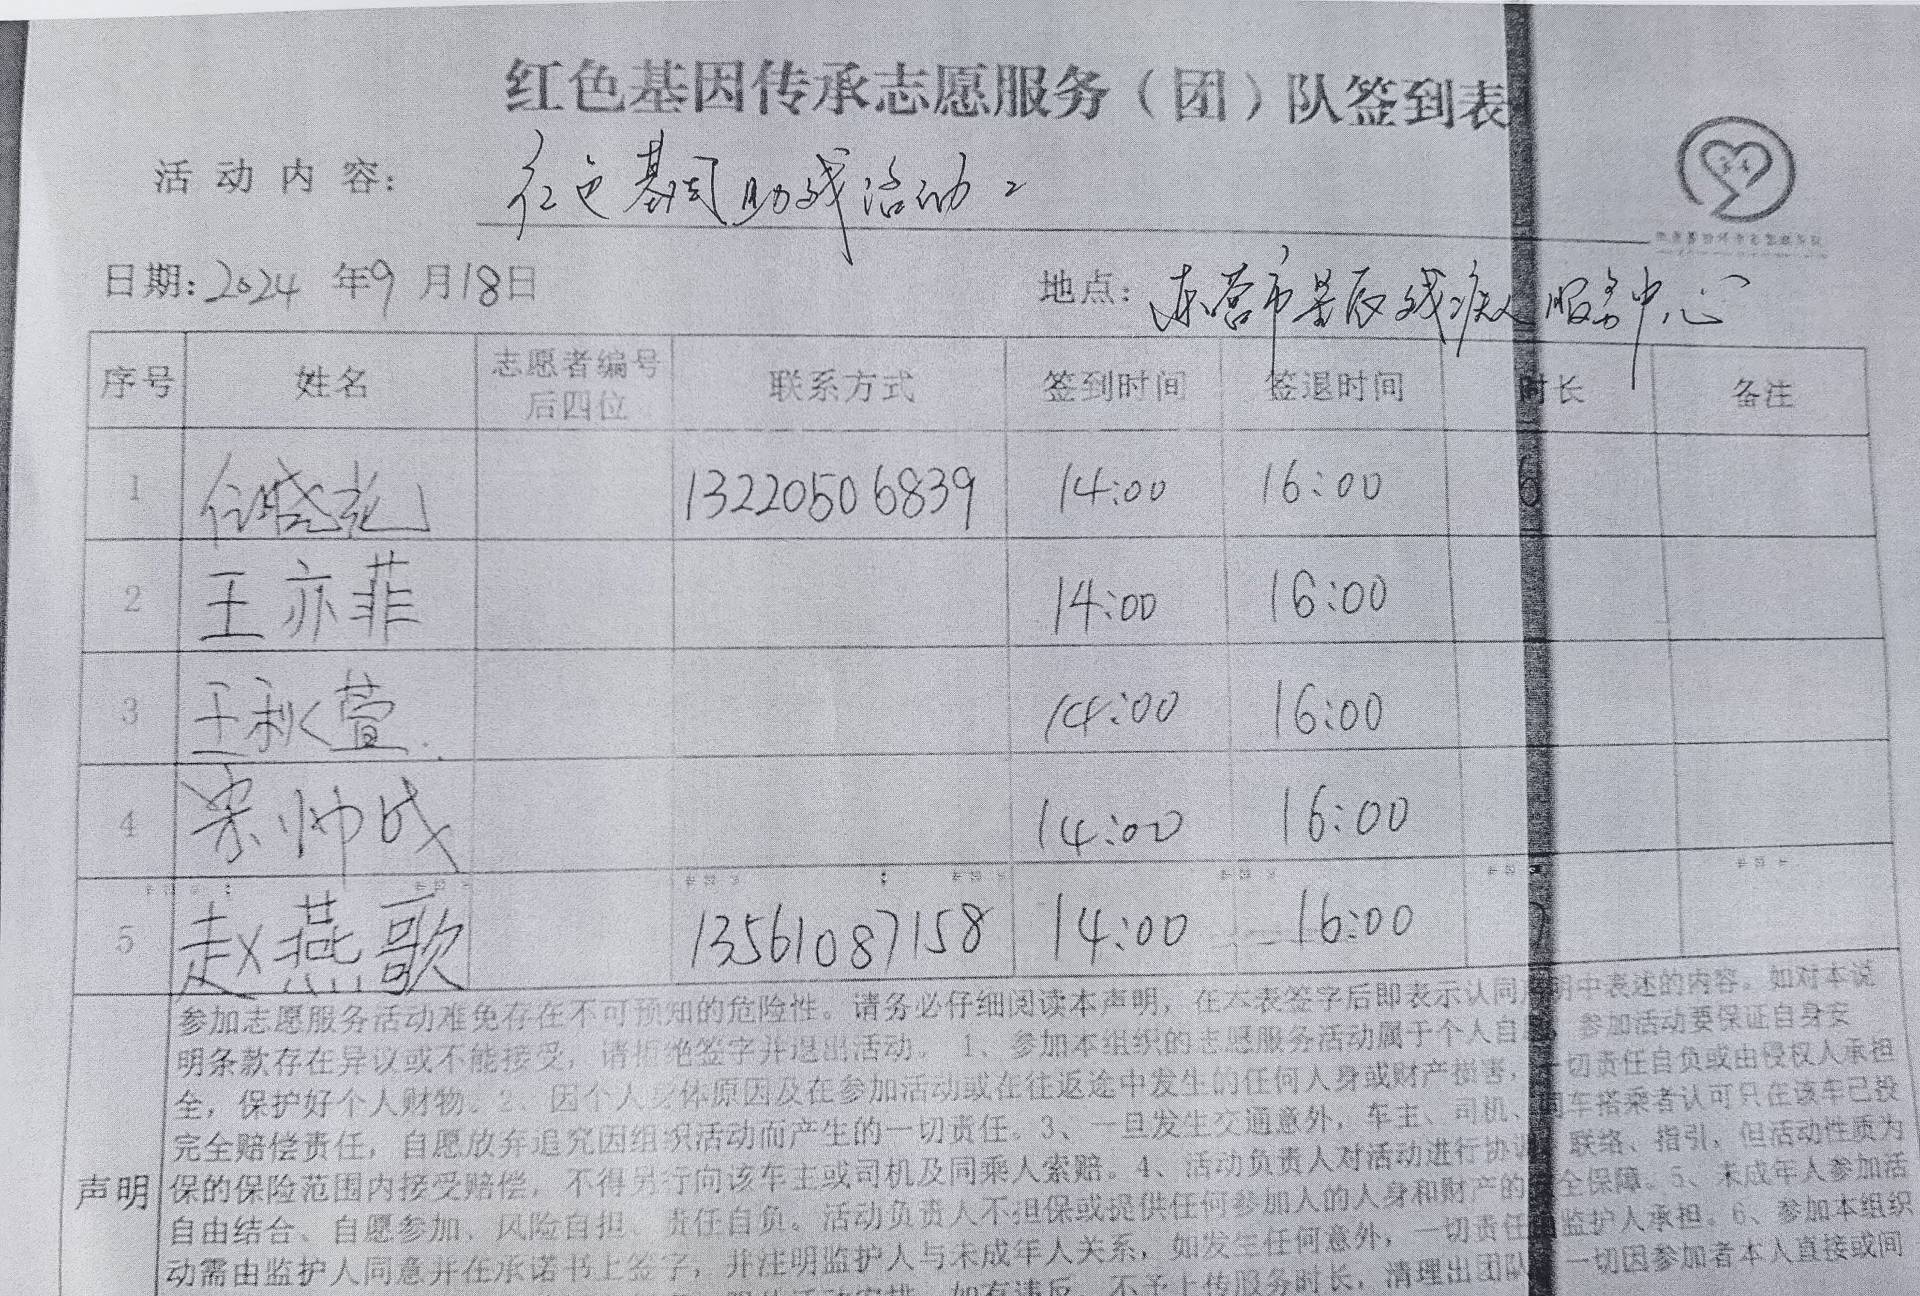 红色基因传承志愿服务（团）队签到表
活动内容： 红色基因助残活动。
日期：2024 年9 月18日 地点：东营市星辰残疾人服务中心
序号 姓名 志愿者编号后四位 联系方式 签到时间 签退时间 时长 备注
1 任晓 13220506839 14:00 16:00
2 王亦菲 14:00 16:00
3 王秋萱 14:00 16:00
4 宋帅成 14:00 16:00
5 赵燕歌 13561087158 14:00 16:00
声明
参加志愿服务活动难免存在不可预知的危险性。请务必仔细阅读本声明，在本表签字后即表示认同声明中表述的内容。如对本说
明条款存在异议或不能接受，请拒绝签字并退出活动。1、参加本组织的志愿服务活动属于个人自愿，参加活动要保证自身安
全，保护好个人财物。2、因个人身体原因及在参加活动或在往返途中发生的任何人身或财产损害，一切责任自负或由侵权人承担
完全赔偿责任，自愿放弃追究因组织活动而产生的一切责任。3、一旦发生交通意外，车主、司机、同车搭乘者认可只在该车已投
保的保险范围内接受赔偿，不得另行向该车主或司机及同乘人索赔。4、活动负责人对活动进行协调、联络、指引，但活动性质为
自由结合、自愿参加、风险自担、责任自负。活动负责人不担保或提供任何参加人的人身和财产的安全保障。5、未成年人参加活
动需由监护人同意并在承诺书上签字，并注明监护人与未成年人关系，如发生任何意外，一切责任由监护人承担。6、参加本组织
如有违反，不予上传服务时长，清理出团队。一切因参加者本人直接或间